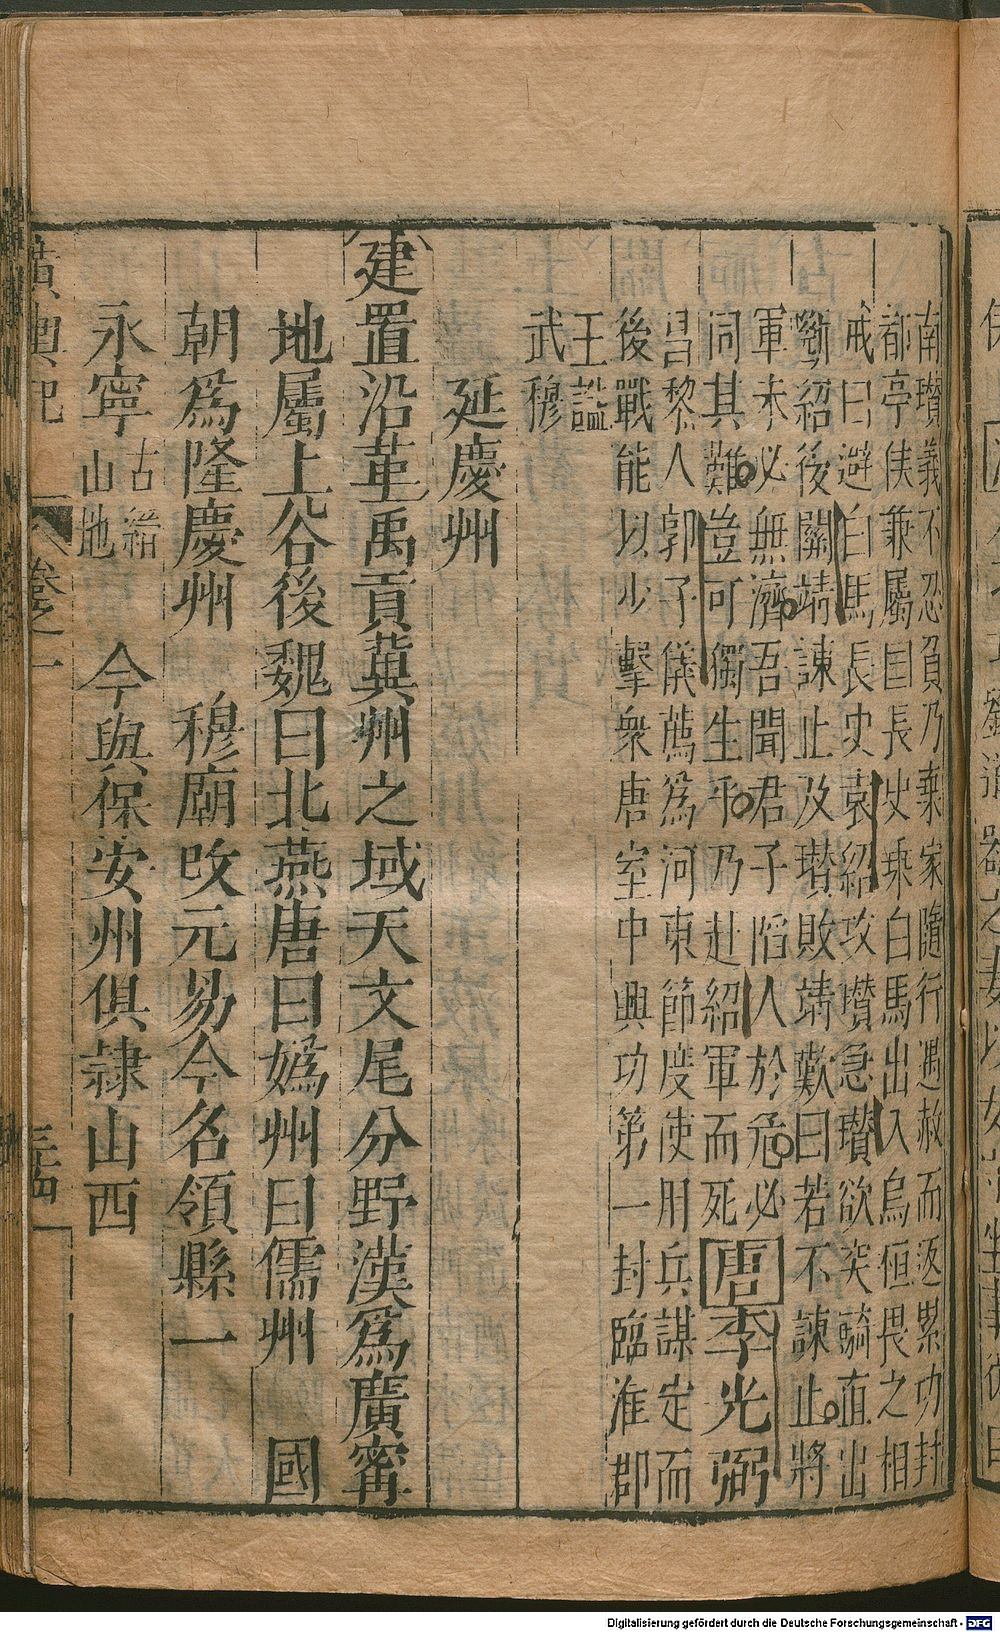 南瓚義不忍負乃棄家隨行遇赦而返累功封
都亭侯兼屬国長史乘白馬出入烏恒畏之相
戒曰避白馬長史袁紹攻瓚急瓚欲突騎直出
斷紹後關靖諫止及瓚敗靖歎曰若不諫止將
軍未必無濟吾聞君子陷人於危必
同其難豈可獨生乎乃赴紹軍而死 唐 李光弼
昌黎人郭子儀薦為河東節度使用兵謀定而
後戰能以少擊衆唐室中興功第一封臨淮郡
王諡
武穆
延慶州
建置沿革禹貢冀州之域天文尾分野漢爲廣甯
地屬上谷後魏曰北燕唐曰媯州曰儒州 國
朝爲隆慶州 穆廟改元易今名領縣一
永寧 古縉山地 今與保安州俱隷山西
廣輿記 卷之一
Digitalisierung gefördert durch die Deutsche Forschungsgemeinschaft - DFG